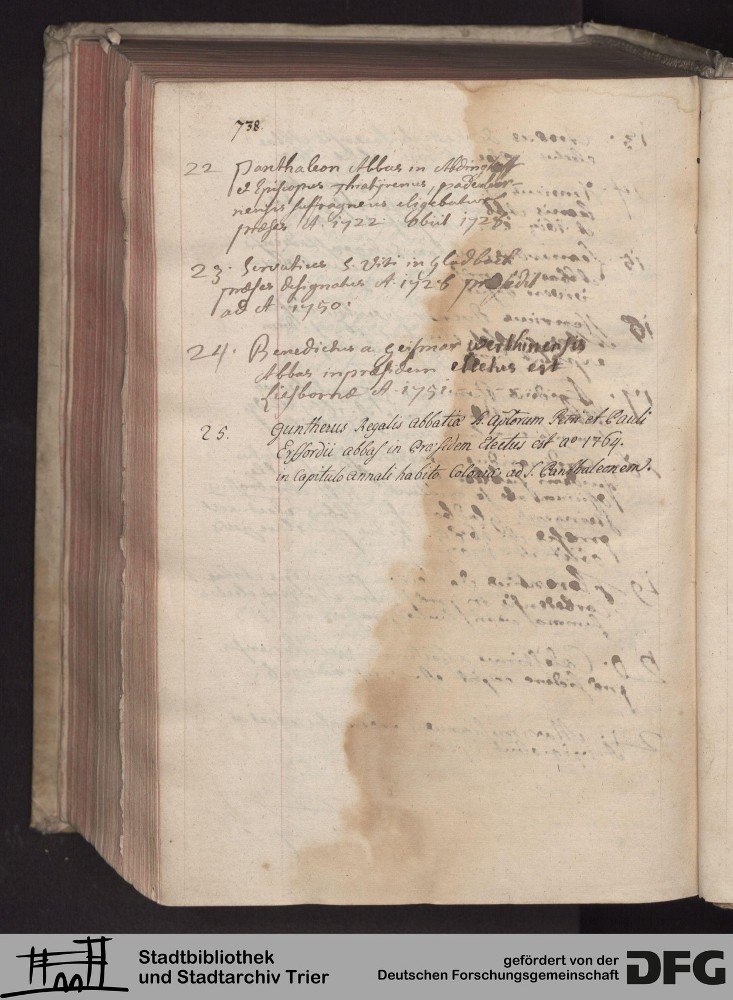 738.
22 Panthaleon Abbas in Abdinghoff
et Episcopus
nensis suffraganeus eligebatur
præses A. 1722. Obiit 1727
23. Servatius S. Viti in Gladbach
præses designatus A. 1726 præfuit
ad A. 1750.
24. Benedictus a Geismar werthinensis
Abbas in præsidem electus est
Liesbornæ A. 1751.
25. Guntherus Regalis abbatiæ S. Aptorum Petri et Pauli
Erffordii abbas in Præsidem Electus est ao 1764.
in capitulo annali habito Coloniæ ad S. Panthaleonem.
Stadtbibliothek
und Stadtarchiv Trier
gefördert von der
Deutschen Forschungsgemeinschaft
DFG